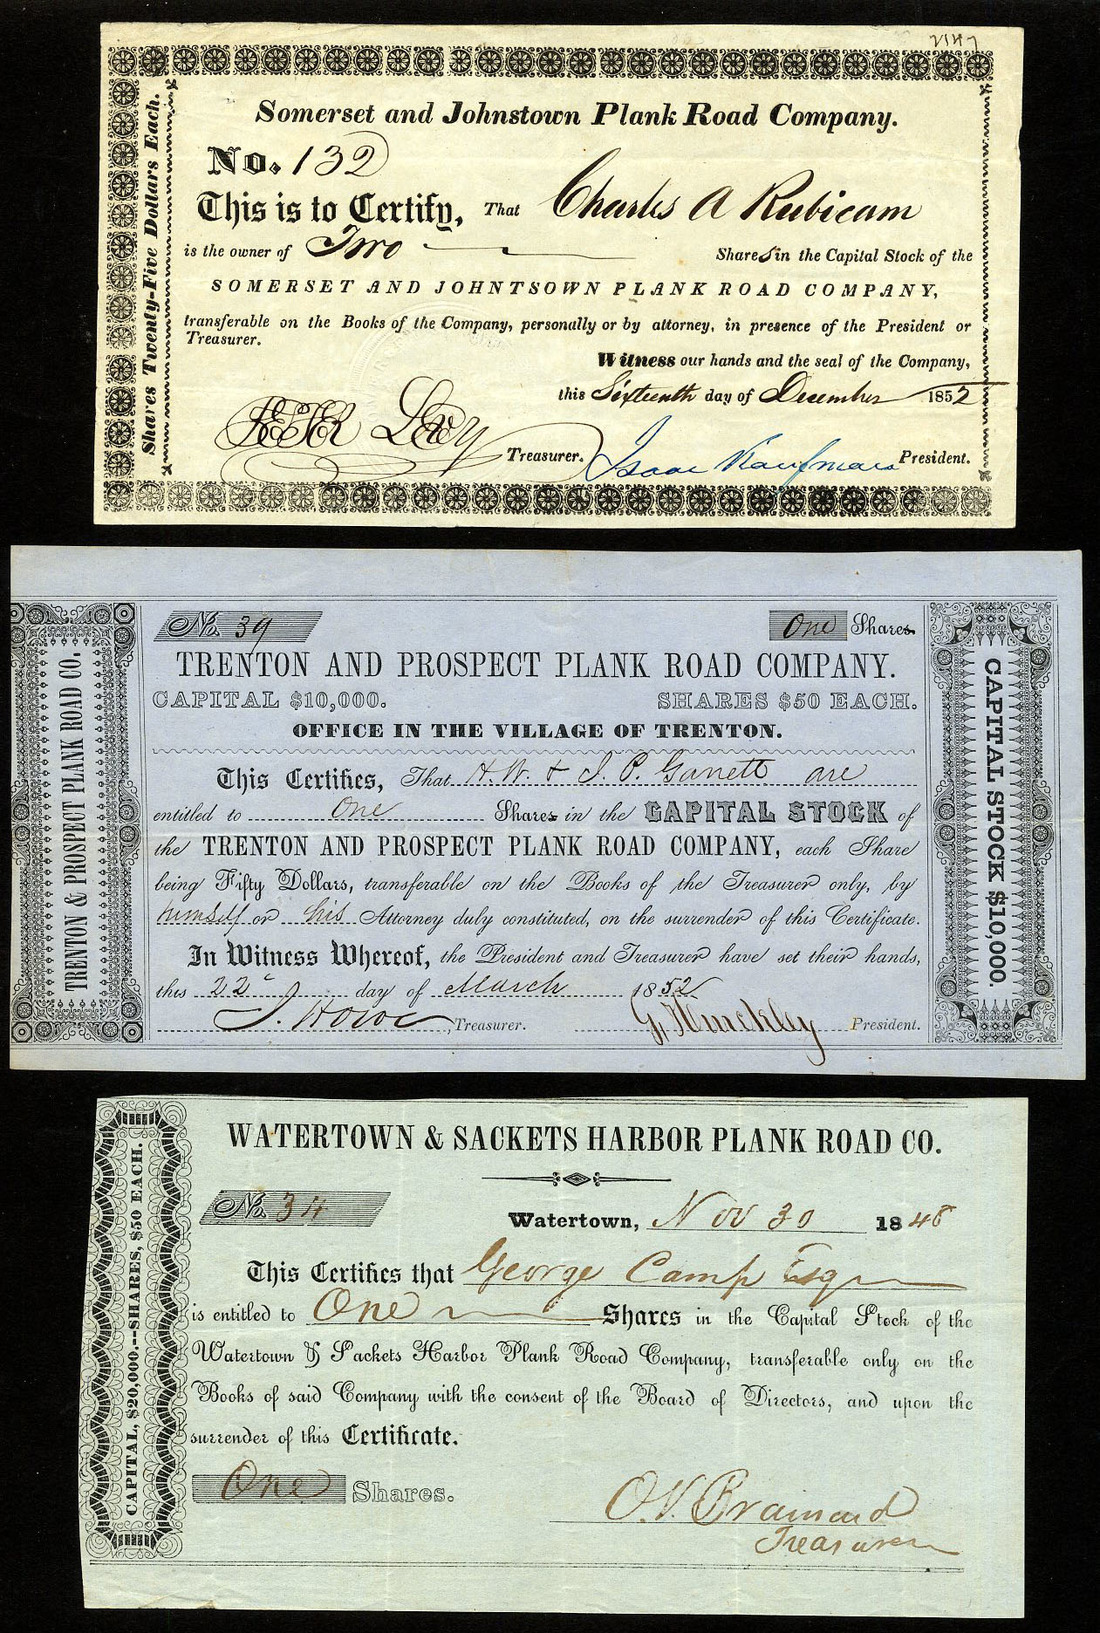 2147
Somerset and Johnstown Plank Road Company.
Shares Twenty-Five Dollars Each.
No. 132
This is to Certify, That Charles A Rubicam
is the owner of Two Shares in the Capital Stock of the
SOMERSET AND JOHNTSOWN PLANK ROAD COMPANY,
transferable on the Books of the Company, personally or by attorney, in presence of the President or
Treasurer.
Witness our hands and the seal of the Company,
this Sixteenth day of December 1852
Treasurer. Isaac Kaufman President.
TRENTON & PROSPECT PLANK ROAD CO.
No. 39 One Shares
TRENTON AND PROSPECT PLANK ROAD COMPANY.
CAPITAL $10,000. SHARES $50 EACH.
OFFICE IN THE VILLAGE OF TRENTON.
This Certifies, That H. W. & J. P. Garrett are
entitled to One Shares in the CAPITAL STOCK of
the TRENTON AND PROSPECT PLANK ROAD COMPANY, each Share
being Fifty Dollars, transferable on the Books of the Treasurer only, by
himself or his Attorney duly constituted, on the surrender of this Certificate.
In Witness Whereof, the President and Treasurer have set their hands,
this 22 day of March 1852
J. Howe, Treasurer. G. Hinckley President.
CAPITAL STOCK $10,000.
WATERTOWN & SACKETS HARBOR PLANK ROAD CO.
CAPITAL, $20,000.--SHARES, $50 EACH.
No. 34
Watertown, Nov 30 1848
This Certifies that George Camp Esq
is entitled to One Shares in the Capital Stock of the
Watertown & Sackets Harbor Plank Road Company, transferable only on the
Books of said Company with the consent of the Board of Directors, and upon the
surrender of this Certificate.
One Shares.
O. V. Brainard
Treasurer